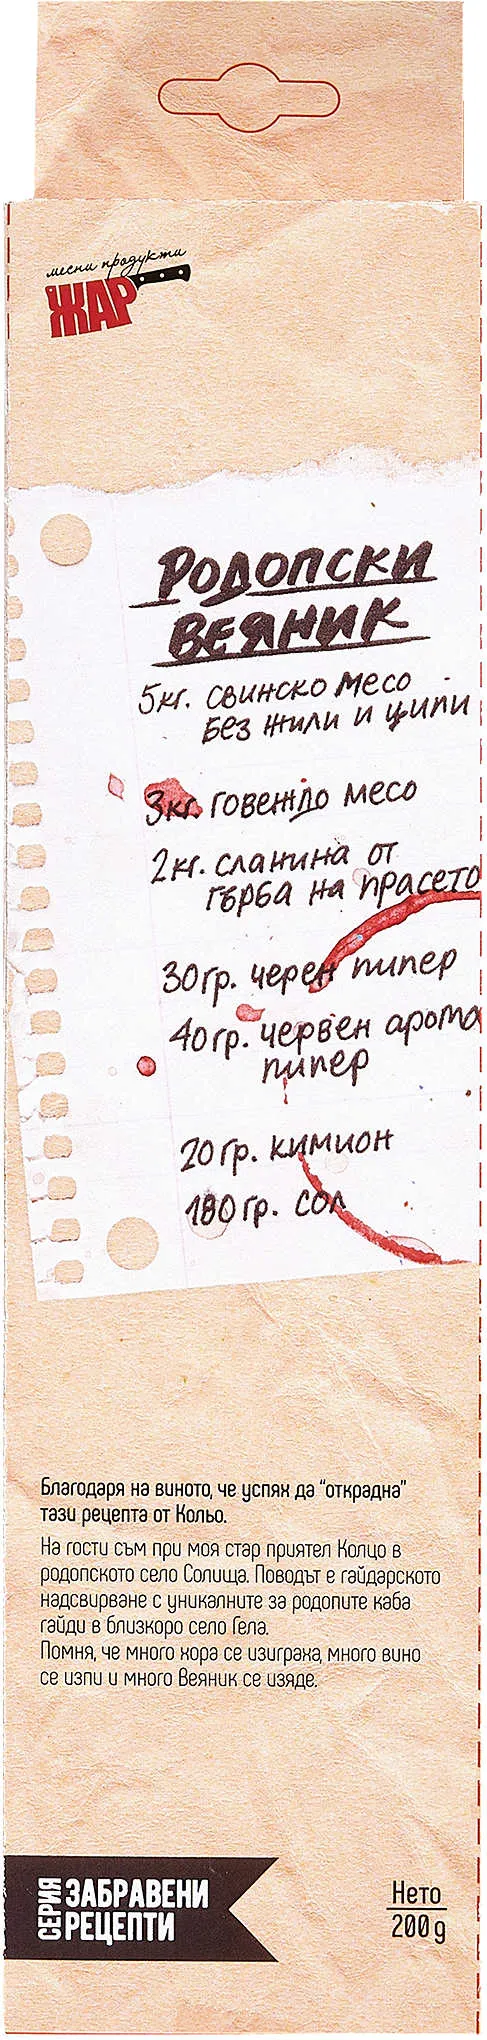 месни продукти
ЖАР
РОДОПСКИ
ВЕЯНИК
5кг. свинско месо
без жили и ципи
3кг. говеждо месо
2кг. сланина от
гърба на прасето
30гр. черен пипер
40гр. червен арома
пипер
20гр. кимион
180гр. сол
Благодаря на виното, че успях да "открадна"
тази рецепта от Кольо.
На гости съм при моя стар приятел Колцо в
родопското село Солища. Поводът е гайдарското
надсвирване с уникалните за родопите каба
гайди в близкоро село Гела.
Помня, че много хора се изиграха, много вино
се изпи и много Веяник се изяде.
СЕРИЯ
ЗАБРАВЕНИ
РЕЦЕПТИ
Нето
200 g